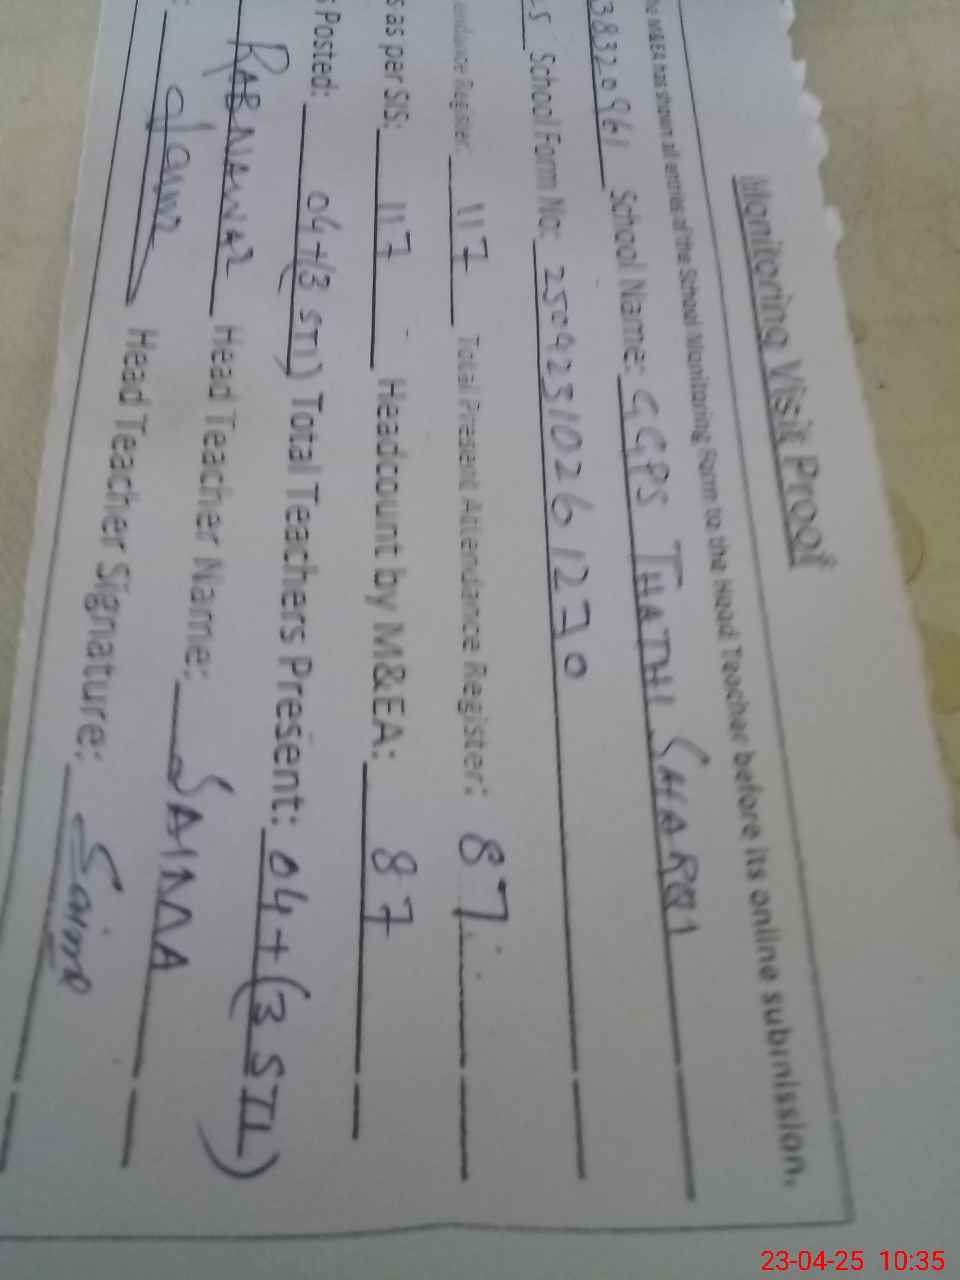 Monitoring Visit Proof
he M&EA has shown all entries of the School Monitoring Form to the Head Teacher before its online submission.
38320961 School Name: GGPS THATHI SHARQI
-5 School Form No: 2509231026 1230
endance Register: 117 Total Present Attendance Register: 87
s as per SIS: 117 Headcount by M&EA: 87
s Posted: 04+(3 STI) Total Teachers Present: 04+(3 STI)
RABNAWAZ Head Teacher Name: SAIMA
: Head Teacher Signature: Saima
23-04-25 10:35